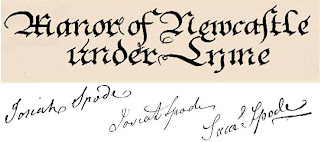 Manor of Newcastle
under Lyme
Josiah Spode
Josiah Spode
Sam.l Spode